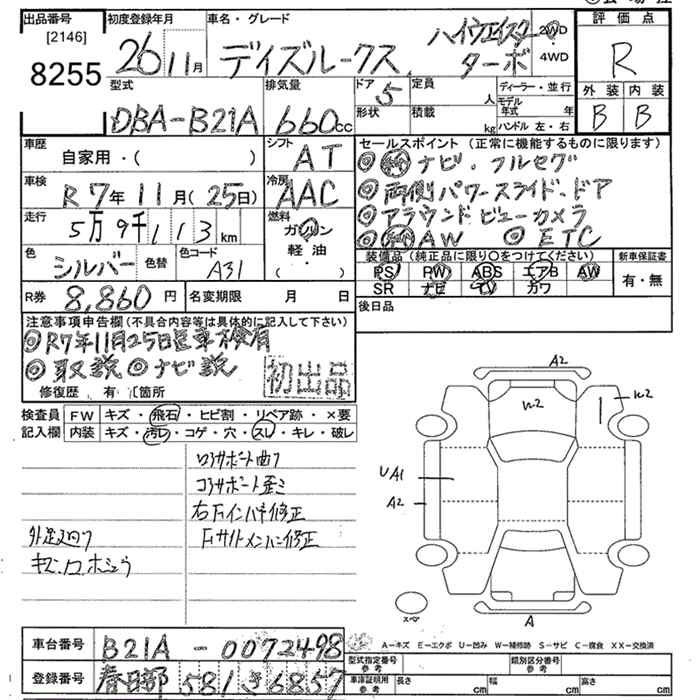 出品番号
[2146]
8255
初度登録年月
26 11月
車名・グレード
デイズルークス ハイウェイスター ターボ
2WD
4WD
評価点
R
外装 内装
B B
型式
DBA-B21A
排気量
660cc
ドア
5
形状
定員
人
積載
kg
ディーラー・並行
モデル年式 年
ハンドル 左・右
車歴
自家用・( )
シフト
AT
車検
R7年11月(25日)
冷房
AAC
走行
5万9千113km
燃料
ガソリン
軽油
( )
色
シルバー
色替
色コード
A31
R券
8,860円
名変期限 月 日
セールスポイント(正常に機能するものに限ります)
◎ 純 ナビ・フルセグ
◎両側パワースライドドア
◎アラウンドビューカメラ
◎ 純 AW ◎ETC
装備品(純正品に限り〇をつけてください)
PS PW ABS エアB AW
SR ナビ TV カワ
新車保証書
有・無
後日品
注意事項申告欄(不具合内容等は具体的に記入して下さい)
◎R7年11月25日迄車検有
◎取説 ◎ナビ説
初出品
修復歴 有 箇所
検査員
記入欄
FW キズ・飛石・ヒビ割・リペア跡・×要
内装 キズ・汚レ・コゲ・穴・スレ・キレ・破レ
コアサポート曲り
コアサポート歪ミ
右Fインパネ修正
Fサイドメンバー修正
外足廻り
キズ・
A2
W2
W2
UA1
A2
A
A-キズ E-エクボ U-凹み W-補修跡 S-サビ C-腐食 XX-交換済
車台番号
B21A-0072498
登録番号
春日部 581 き 6857
型式指定番号
参考
類別区分番号
参考
車庫証明用
参考
長さ cm
幅 cm
高さ cm